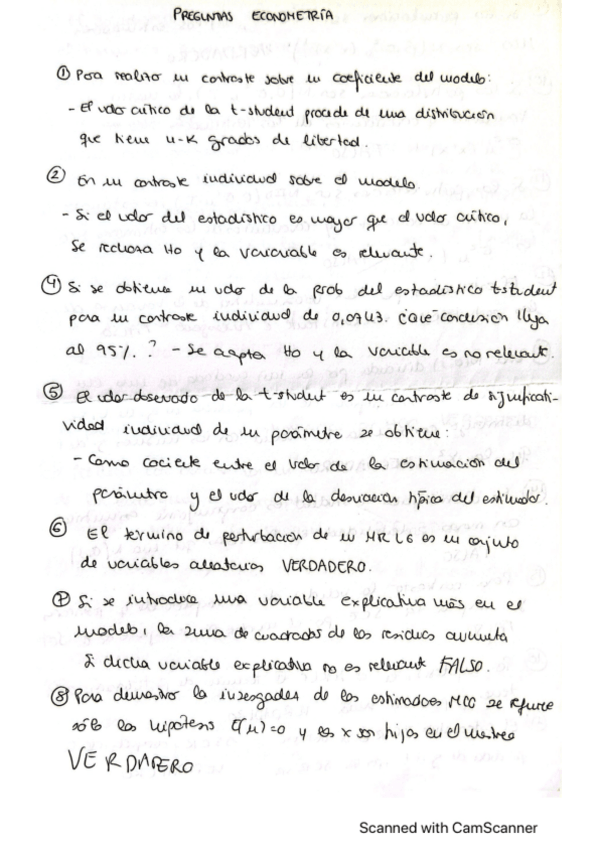 PREGUNTAS ECONOMETRÍA
① Para realizar un contraste sobre un coeficiente del modelo:
- El valor crítico de la t-student procede de una distribución
que tiene n-K grados de libertad.
② En un contraste individual sobre el modelo.
- Si el valor del estadístico es mayor que el valor crítico,
se rechaza Ho y la varariable es relevante.
④ Si se obtiene un valor de la prob del estadístico t-student
para un contraste individual de 0,0943. ¿Que conclusion llega
al 95%.? - Se acepta Ho y la variable es no relevante.
⑤ El valor observado de la t-student es un contraste de significati-
vidad individual de un parámetro se obtiene:
- Como cociente entre el valor de la estimación del
parámetro y el valor de la desviacion típica del estimador.
⑥ El termino de perturbacion de un MRLG es un conjunto
de variables aleatorias VERDADERO.
⑦ Si se introduce una variable explicativa más en el
modelo, la suma de cuadrados de los residuos aumenta
si dicha variable explicativa no es relevant FALSO.
⑧ Para demostrar la insesgadez de los estimadores MCO se requiere
sólo las hipótesis E(μ)=0 y las x son fijas en el muestreo
VERDADERO
Scanned with CamScanner